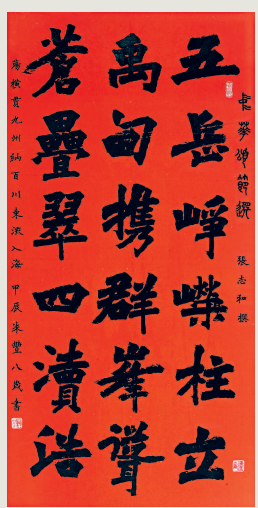 中華頌節選 張志和撰
五岳崢嶸柱立
禹甸携群峯聳
蒼疊翠四瀆浩
蕩橫貫九州納百川東流入海 甲辰朱豐八歲書